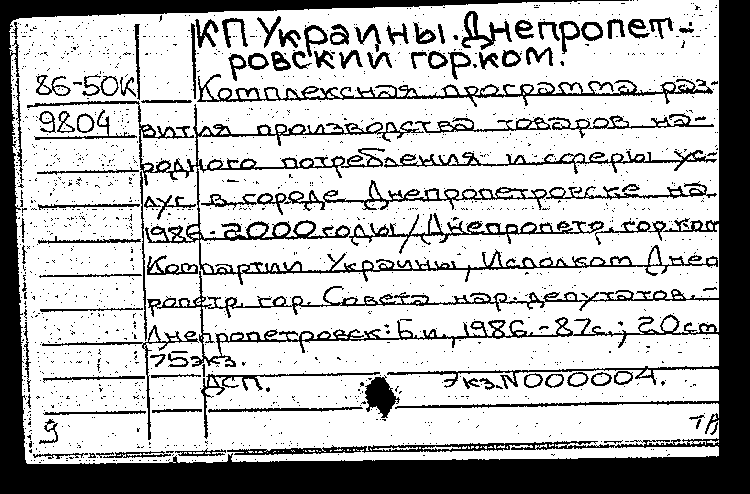 КП Украины. Днепропет-
ровский гор.ком.
86-50К Комплексная программа раз-
9804 вития производства товаров на-
родного потребления и сферы ус-
луг в городе Днепропетровске на
1986-2000 годы / Днепропетр. гор.ком
Компартии Украины, Исполком Днеп
ропетр. гор. Совета нар. депутатов. -
Днепропетровск: Б.и., 1986. - 87с.; 20см
75экз.
ДСП. Экз.N000004.
9